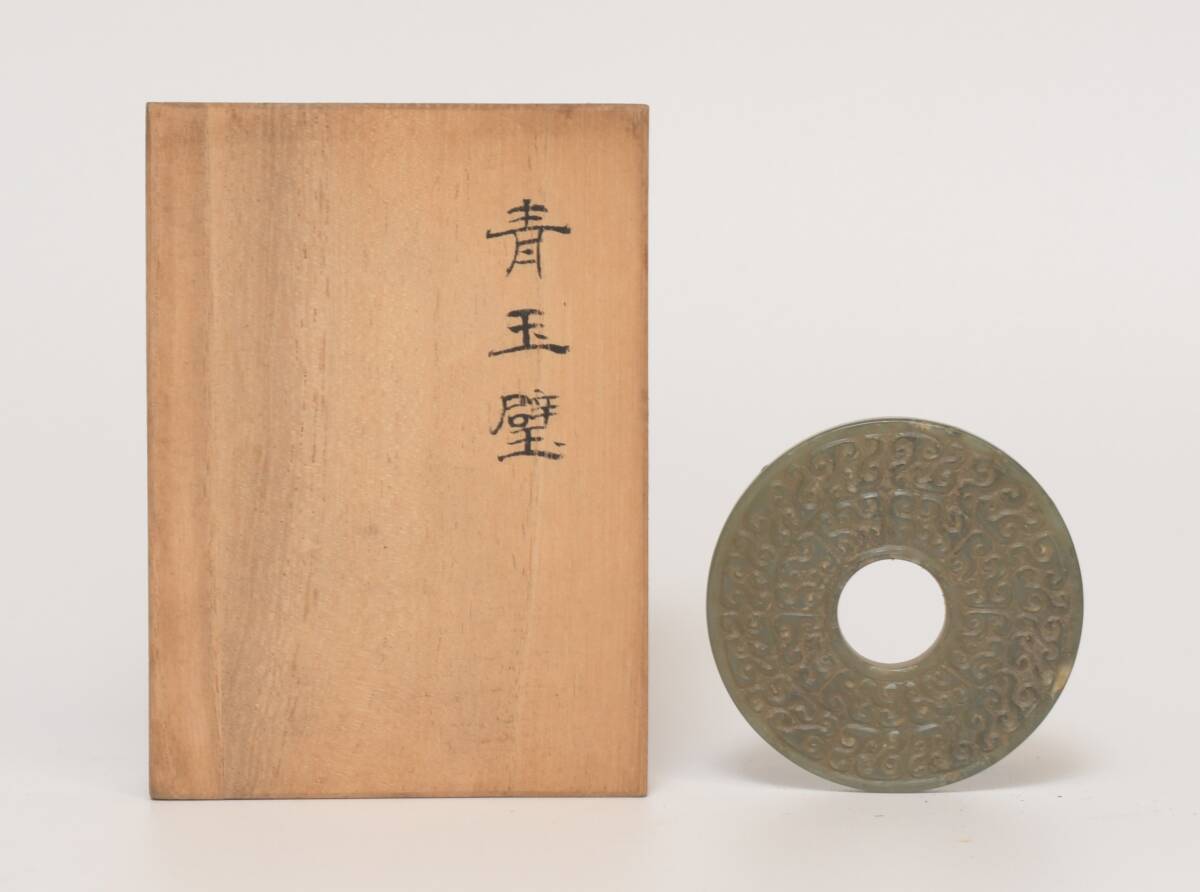 青玉璧